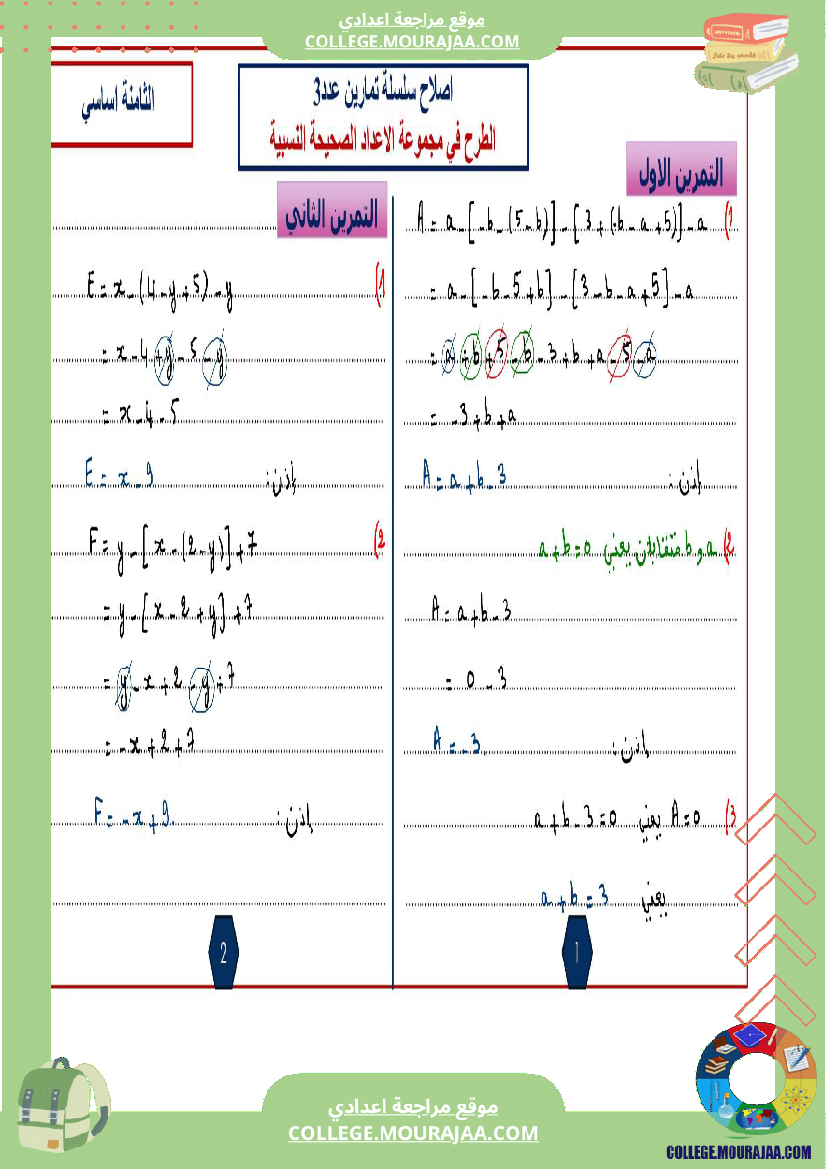 موقع مراجعة اعدادي
COLLEGE.MOURAJAA.COM
الثامنة اساسي
اصلاح سلسلة تمارين عدد3
الطرح في مجموعة الاعداد الصحيحة النسبية
التمرين الاول
1) A = a - [-b - (5-b)] - [3 + (-b-a+5)] - a
= a - [-b-5+b] - [3-b-a+5] - a
= a + b + 5 - b - 3 + b + a - 5 - a
= -3 + b + a
إذن: A = a + b - 3
2) a و b متقابلان يعني a + b = 0
A = a + b - 3
= 0 - 3
إذن: A = -3.
3) A = 0 يعني a + b - 3 = 0
يعني a + b = 3
1
التمرين الثاني
1) E = x - (4-y+5) - y
= x - 4 + y - 5 - y
= x - 4 - 5
إذن: E = x - 9
2) F = y - [x - (2-y)] + 7
= y - [x - 2 + y] + 7
= y - x + 2 - y + 7
= -x + 2 + 7
إذن: F = -x + 9.
2
موقع مراجعة اعدادي
COLLEGE.MOURAJAA.COM
COLLEGE.MOURAJAA.COM